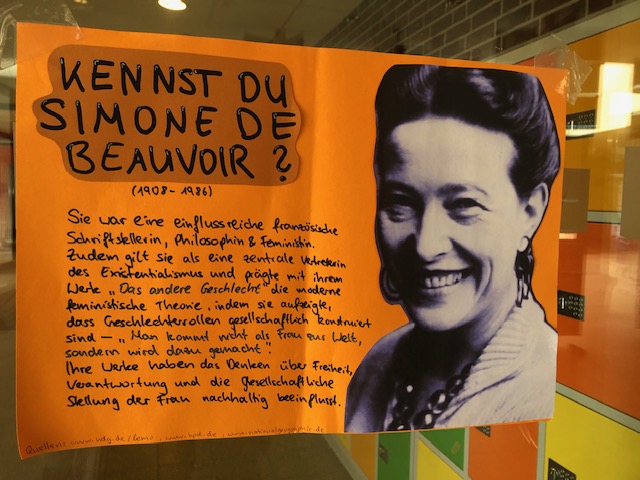 KENNST DU
SIMONE DE
BEAUVOIR ?
(1908-1986)
Sie war eine einflussreiche französische
Schriftstellerin, Philosophin & Feministin.
Zudem gilt sie als eine zentrale Vertreterin
des Existentialismus und prägte mit ihrem
Werk „Das andere Geschlecht" die moderne
feministische Theorie, indem sie aufzeigte,
dass Geschlechterrollen gesellschaftlich konstruiert
sind – „Man kommt nicht als Frau zur Welt,
sondern wird dazu gemacht".
Ihre Werke haben das Denken über Freiheit,
Verantwortung und die gesellschaftliche
Stellung der Frau nachhaltig beeinflusst.
Quellen: